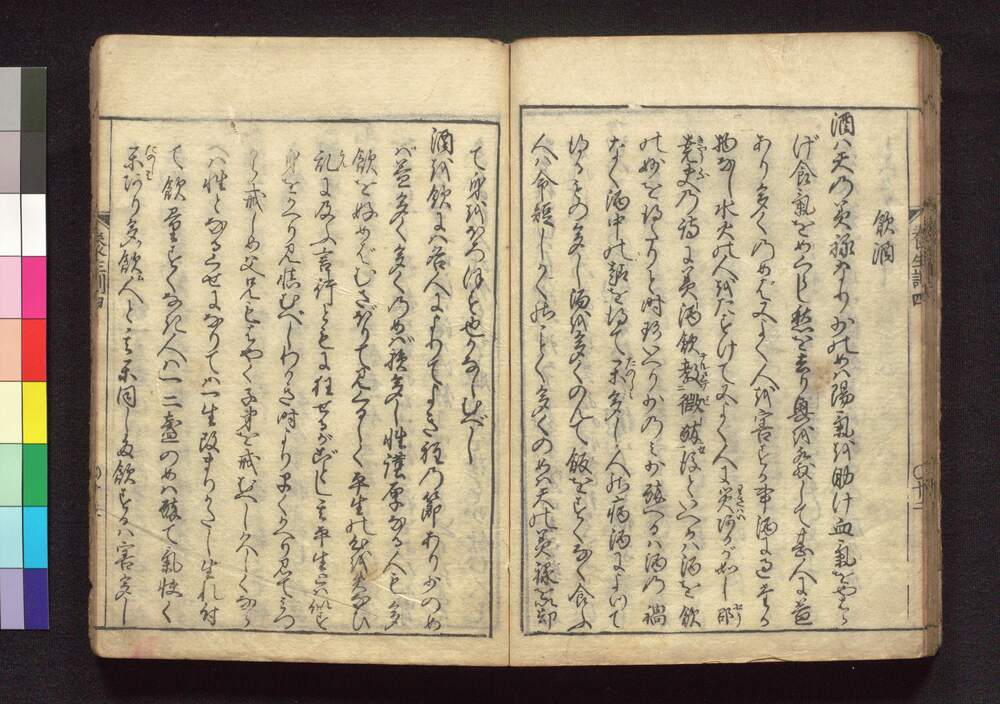 飲酒
酒ハ天の美禄なり少のめハ陽氣を助け血氣をやハら
げ食氣をめぐらし愁を去り興を発して甚人に益
あり多くのめば又よく人を害する事酒に過たる
物なし水火の人をたすけて又よく人に災あるが如し邵
尭夫の詩に美酒飲教微酔後といへるハ酒を飲
の妙を得たりと時珍いへり少のミ少酔へるハ酒の禍
なく酒中の趣を得て楽多し人の病酒によつて
得るもの多し酒を多くのんて飯をすくなく食ふ
人ハ命短しかくのごとく多くのめハ天の美禄を以却
て身をほろほす也かなしむべし
酒を飲にハ各人によりてよき程の節あり少のめ
ば益多く多くのめば損多し性謹厚なる人も多
飲を好めばむさぼりて見ぐるしく平生の心を失ひ
乱に及ふ言行ともに狂せるがごとし其平生とハ似ず
身をかへり見慎むべしわかき時より早くかへり見てミづ
から戒しめ父兄もはやく子弟を戒むべし久しくなら
へハ性となるくせになりてハ一生改まりかたし生れ付
て飲量すくなき人ハ一二盞のめハ酔て氣快く
楽あり多く飲人と其楽同し多飲するハ害多し
養生訓 四